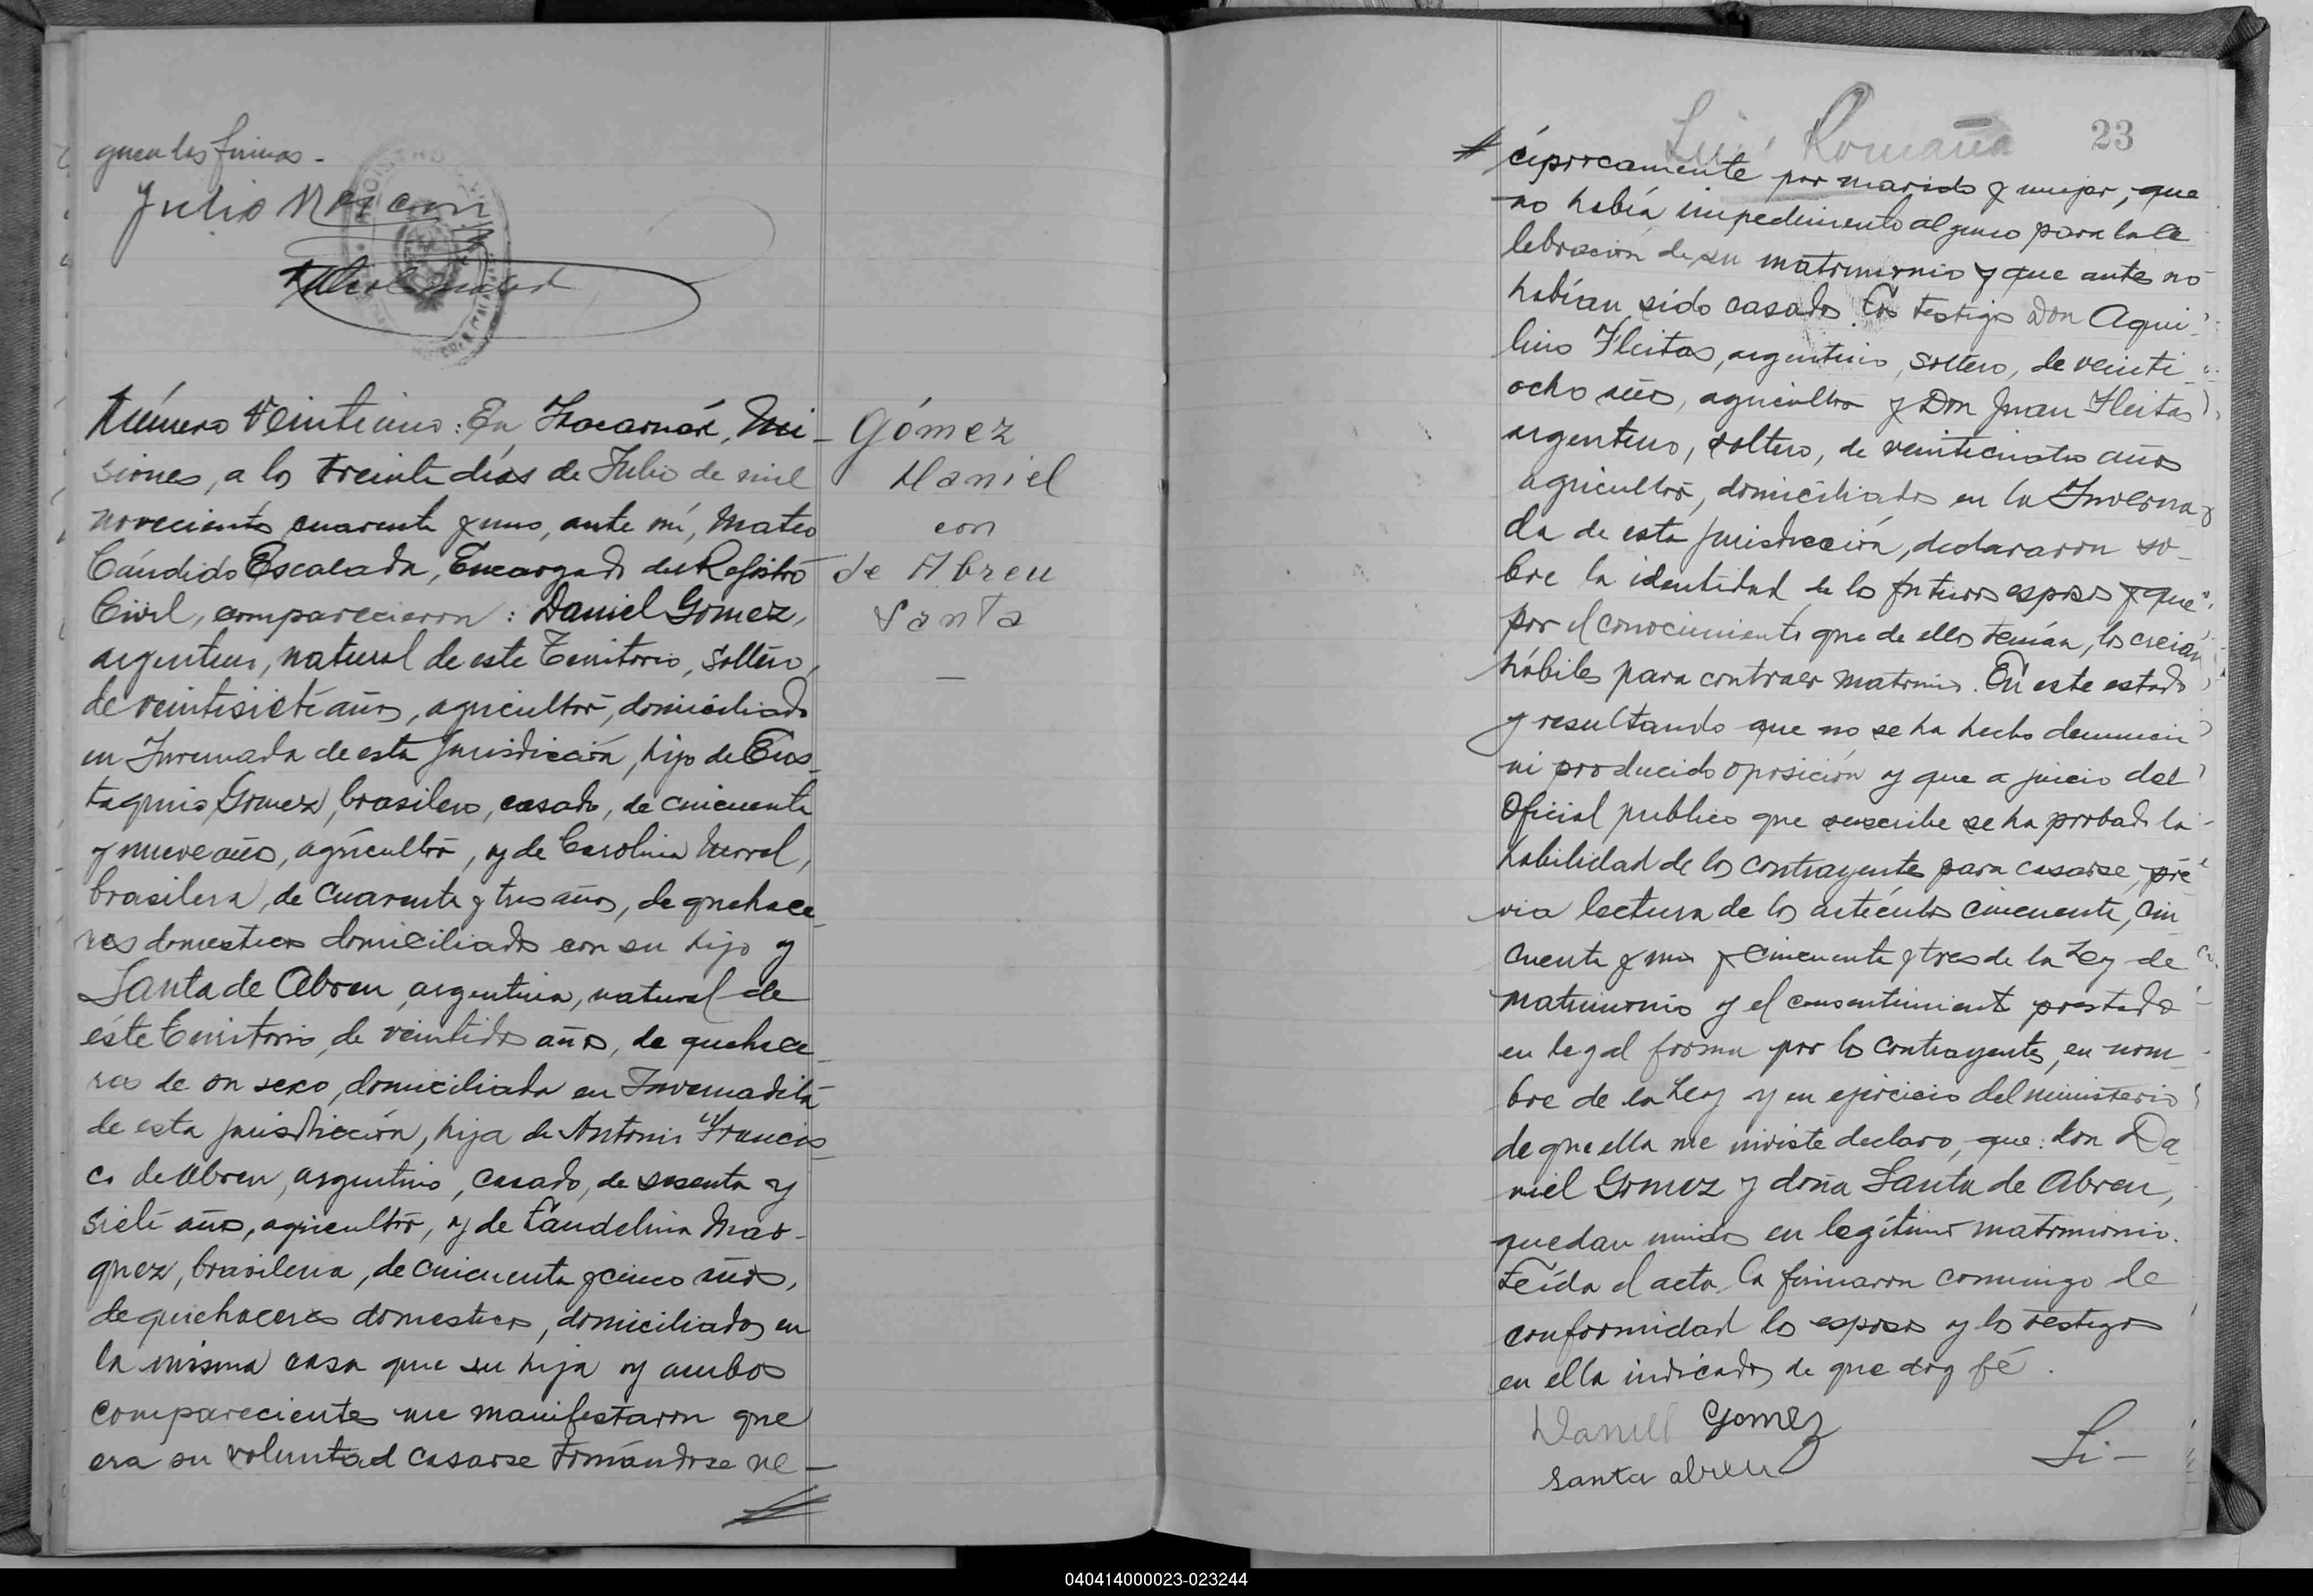 guen las firmas.-
Julio
Número Veintiuno: En Itacaruaré, Mi-
siones, a los treinta días de Julio de mil
novecientos cuarenta y uno, ante mí, Mateo
Cándido Escalada, Encargado del Registro
Civil, comparecieron: Daniel Gomez,
argentino, natural de este Territorio, soltero,
de veintisiete años, agricultor, domiciliado
en Invernada de esta jurisdicción, hijo de Eus-
taquio Gomez, brasilero, casado, de cincuenta
y nueve años, agricultor, y de Carolina
brasilera, de cuarenta y tres años, de quehace-
res domesticos domiciliados con su hijo y
Santa de Abreu, argentina, natural de
éste Territorio, de veintidos años, de quehace-
res de su sexo, domiciliada en Invernadita
de esta jurisdicción, hija de Antonio Francis-
co de Abreu, argentino, casado, de sesenta y
siete años, agricultor, y de Candelina Mar-
quez, brasilera, de cincuenta y cinco años,
de quehaceres domesticos, domiciliados en
la misma casa que su hija y ambos
comparecientes me manifestaron que
era su voluntad casarse tomándose re-
Gómez
Daniel
con
de Abreu
Santa
—
Luis Romaña
23
cíprocamente por marido y mujer, que
no había impedimento alguno para la ce-
lebración de su matrimonio y que antes no
habían sido casados. Los testigos Don Aqui-
lino Fleitas, argentino, soltero, de veinti-
ocho años, agricultor y Don Juan Fleitas
argentino, soltero, de veinticuatro años
agricultor, domiciliados en la Inverna-
da de esta jurisdicción, declararon so-
bre la identidad de los futuros esposos y que
por el conocimiento que de ellos tenían, los creían
hábiles para contraer matrimio. En este estado
y resultando que no se ha hecho denuncia
ni producido oposición y que a juicio del
Oficial publico que suscribe se ha probado la
habilidad de los contrayentes para casarse, pré-
via lectura de los artículos cincuenta, cin-
cuenta y uno y cincuenta y tres de la Ley de
matrimonio y el consentimiento prestado
en legal forma por los contrayentes, en nom-
bre de la Ley y en ejercicio del ministerio
de que ella me inviste declaro, que: don Da-
niel Gomez y doña Santa de Abreu,
quedan unidos en legítimo matrimonio.
Leída el acta la firmaron conmigo de
conformidad los esposos y los testigos
en ella indicados de que doy fé.
Daniel Gomez
santa abreu
Si-
040414000023-023244